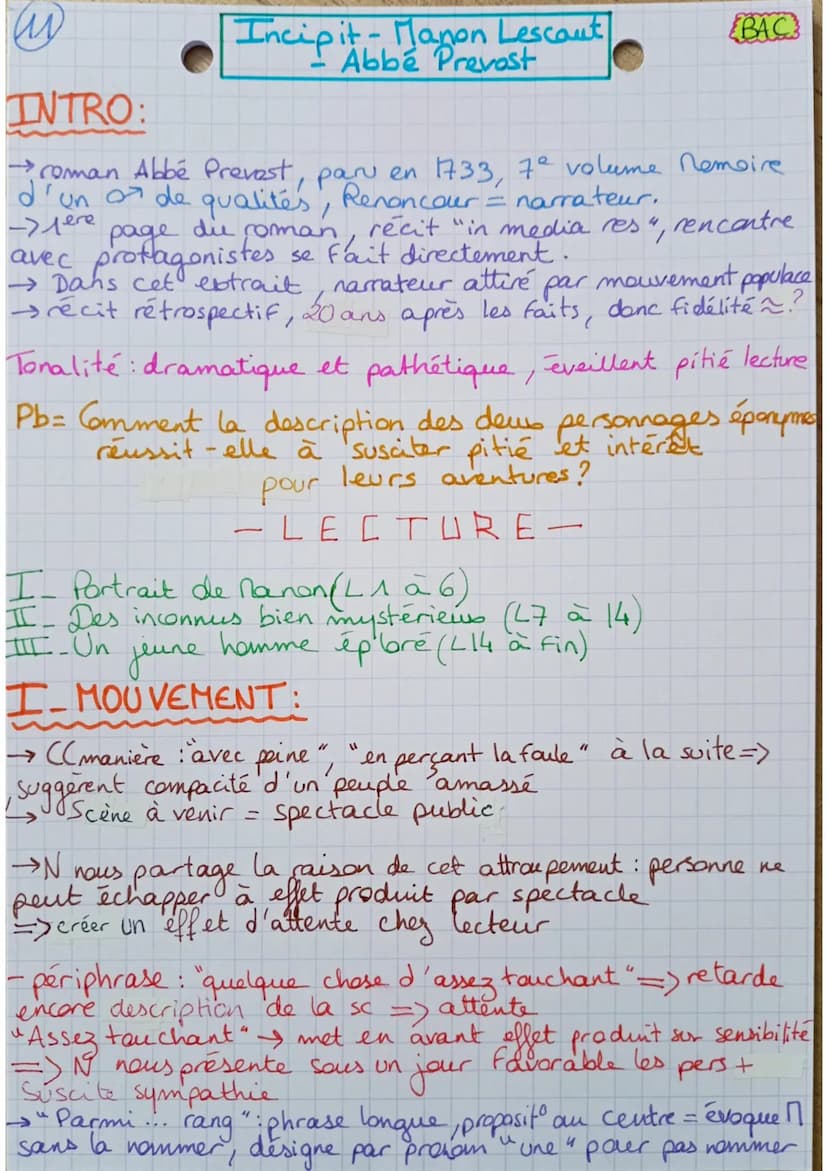 11
Incipit - Manon Lescaut
- Abbé Prevost
BAC
INTRO:
→ roman Abbé Prevost, paru en 1733, 7e volume Memoire
d'un ♂ de qualités, Renoncour = narrateur.
→ 1ère page du roman, récit "in media res", rencontre
avec protagonistes se fait directement.
→ Dans cet extrait, narrateur attiré par mouvement populace
→ récit rétrospectif, 20 ans après les faits, donc fidélité ≈ ?
Tonalité : dramatique et pathétique, éveillent pitié lecture
Pb = Comment la description des deux personnages éponymes
réussit-elle à susciter pitié et intérêt
pour leurs aventures ?
- LECTURE -
I - Portrait de Manon (L1 à 6)
II - Des inconnus bien mystérieux (L7 à 14)
III - Un jeune homme éploré (L14 à fin)
I - MOUVEMENT :
→ CC manière : "avec peine", "en perçant la foule" à la suite =>
suggèrent compacité d'un peuple amassé
↳ Scène à venir = spectacle public
→ N nous partage la raison de cet attroupement : personne ne
peut échapper à effet produit par spectacle
=> créer un effet d'attente chez lecteur
- périphrase : "quelque chose d'assez touchant" => retarde
encore description de la sc => attente
"Assez touchant" → met en avant effet produit sur sensibilité
=> N nous présente sous un jour favorable les pers +
suscite sympathie
→ "Parmi ... rang" : phrase longue, propositᵒ au centre = évoque M
sans la nommer, désigne par pronom "une" pour pas nommer